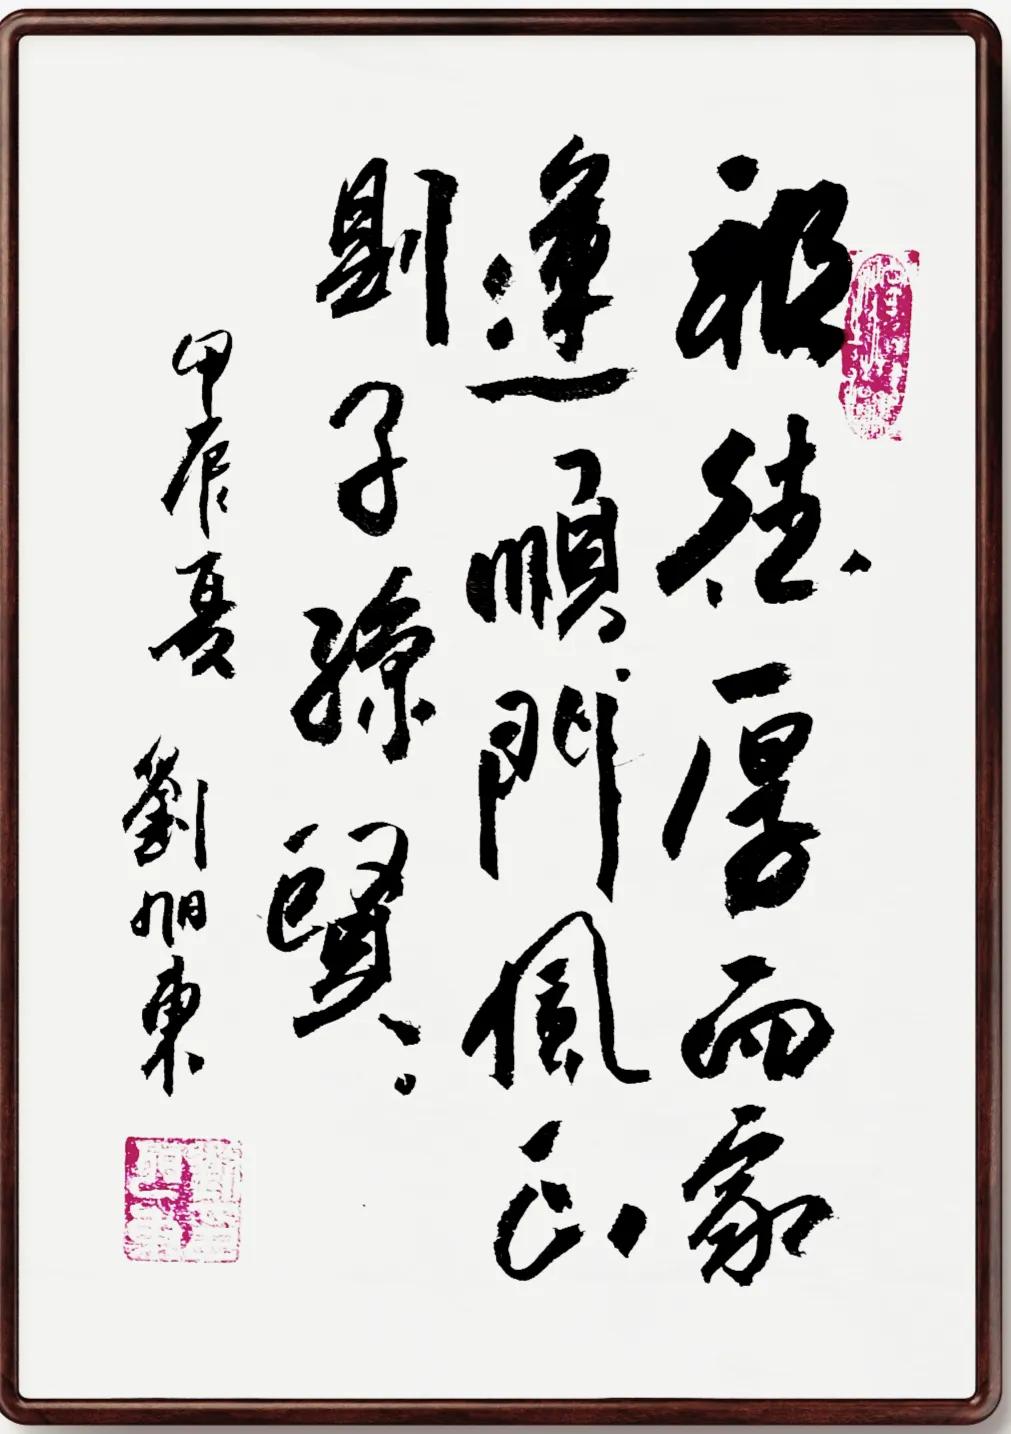 祖德厚而家
運順門風正
則子孫賢
甲辰夏 劉旭東